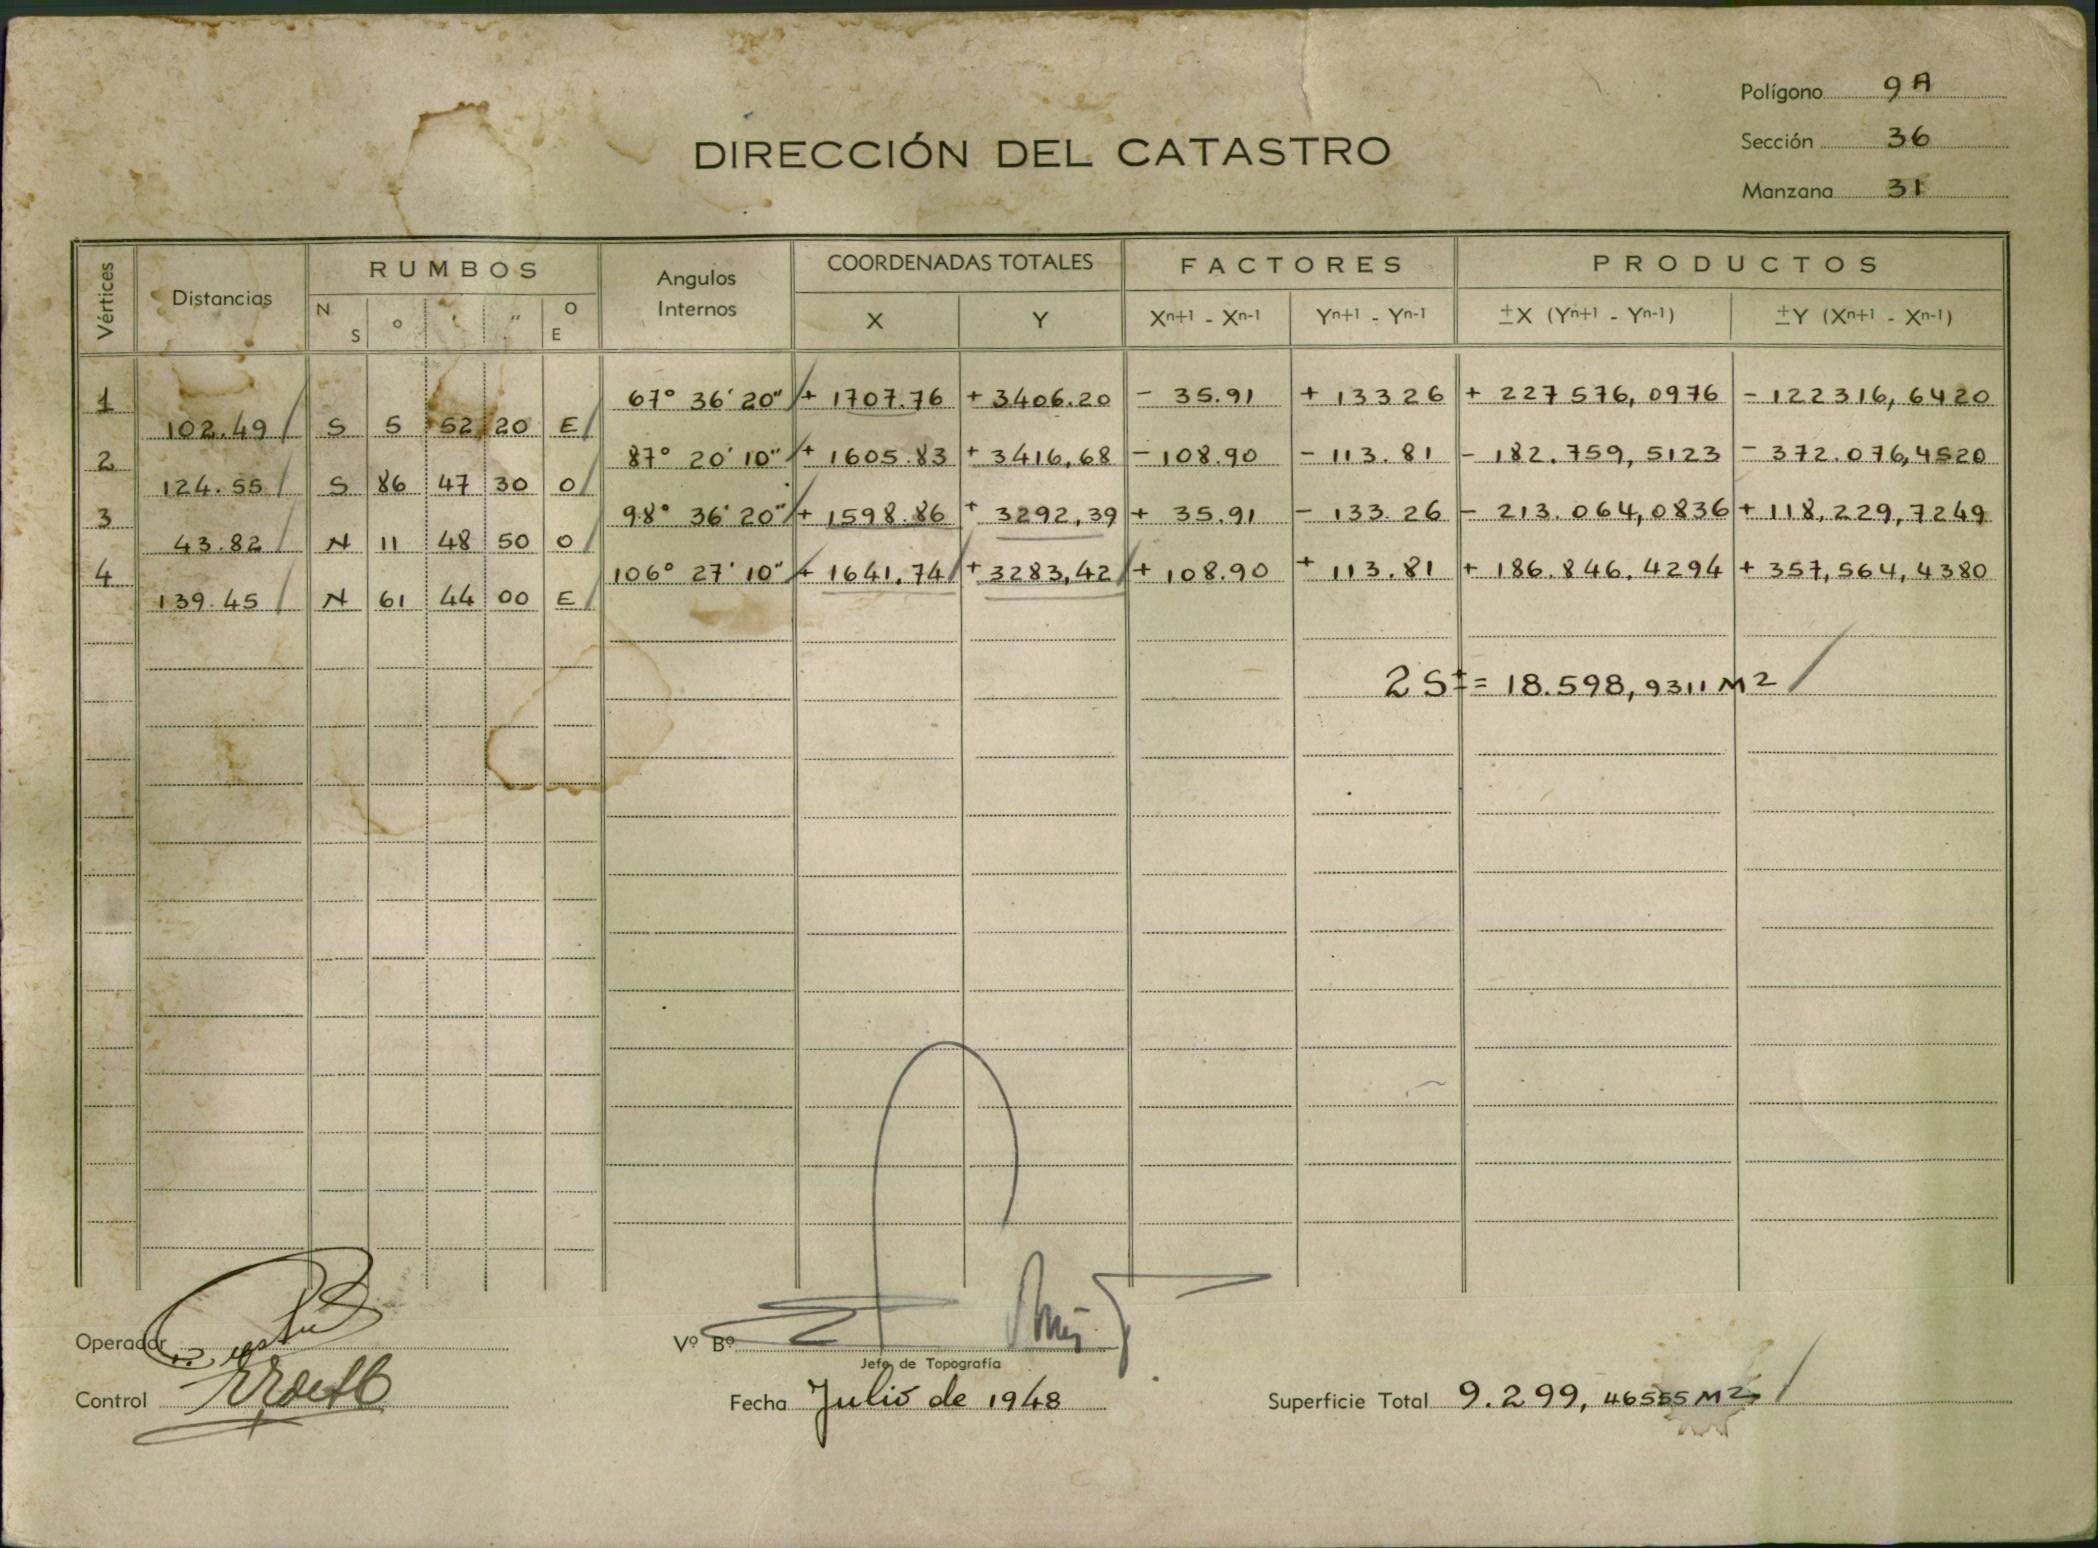 Polígono 9A
Sección 36
Manzana 31
DIRECCIÓN DEL CATASTRO
Vértices Distancias RUMBOS Angulos Internos COORDENADAS TOTALES FACTORES PRODUCTOS
N S ° ' " O E X Y Xn+1 - Xn-1 Yn+1 - Yn-1 ±X (Yn+1 - Yn-1) ±Y (Xn+1 - Xn-1)
1 67° 36' 20" + 1707.76 + 3406.20 - 35.91 + 133 26 + 227576,0976 - 122316,6420
102.49 S 5 52 20 E
2 87° 20' 10" + 1605.83 + 3416,68 - 108.90 - 113.81 - 182.759,5123 - 372.076,4520
124.55 S 86 47 30 O
3 98° 36' 20" + 1598.86 + 3292,39 + 35.91 - 133.26 - 213.064,0836 + 118,229,7249
43.82 N 11 48 50 O
4 106° 27' 10" + 1641.74 + 3283,42 + 108.90 + 113.81 + 186.846.4294 + 357,564,4380
139.45 N 61 44 00 E
2 S ± = 18.598,9311 M2
Operador
Vº Bº
Jefe de Topografía
Control
Fecha Julio de 1948
Superficie Total 9.299,46555 M2